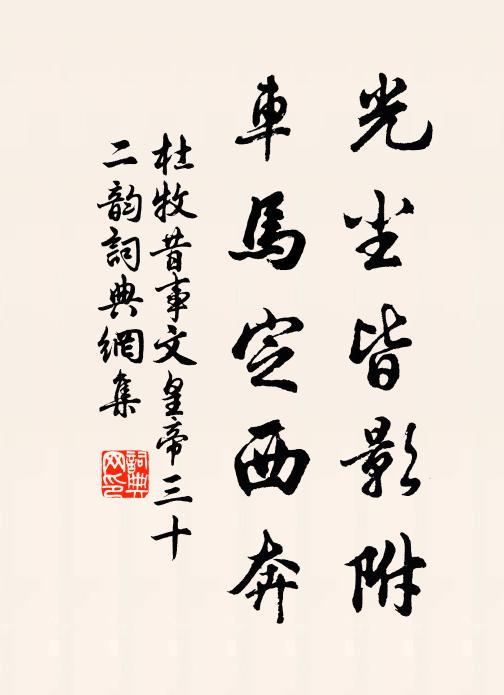 光尘皆影附
車馬定西奔
杜牧昔事文皇帝三十
二韵詞典網集
詞典网印